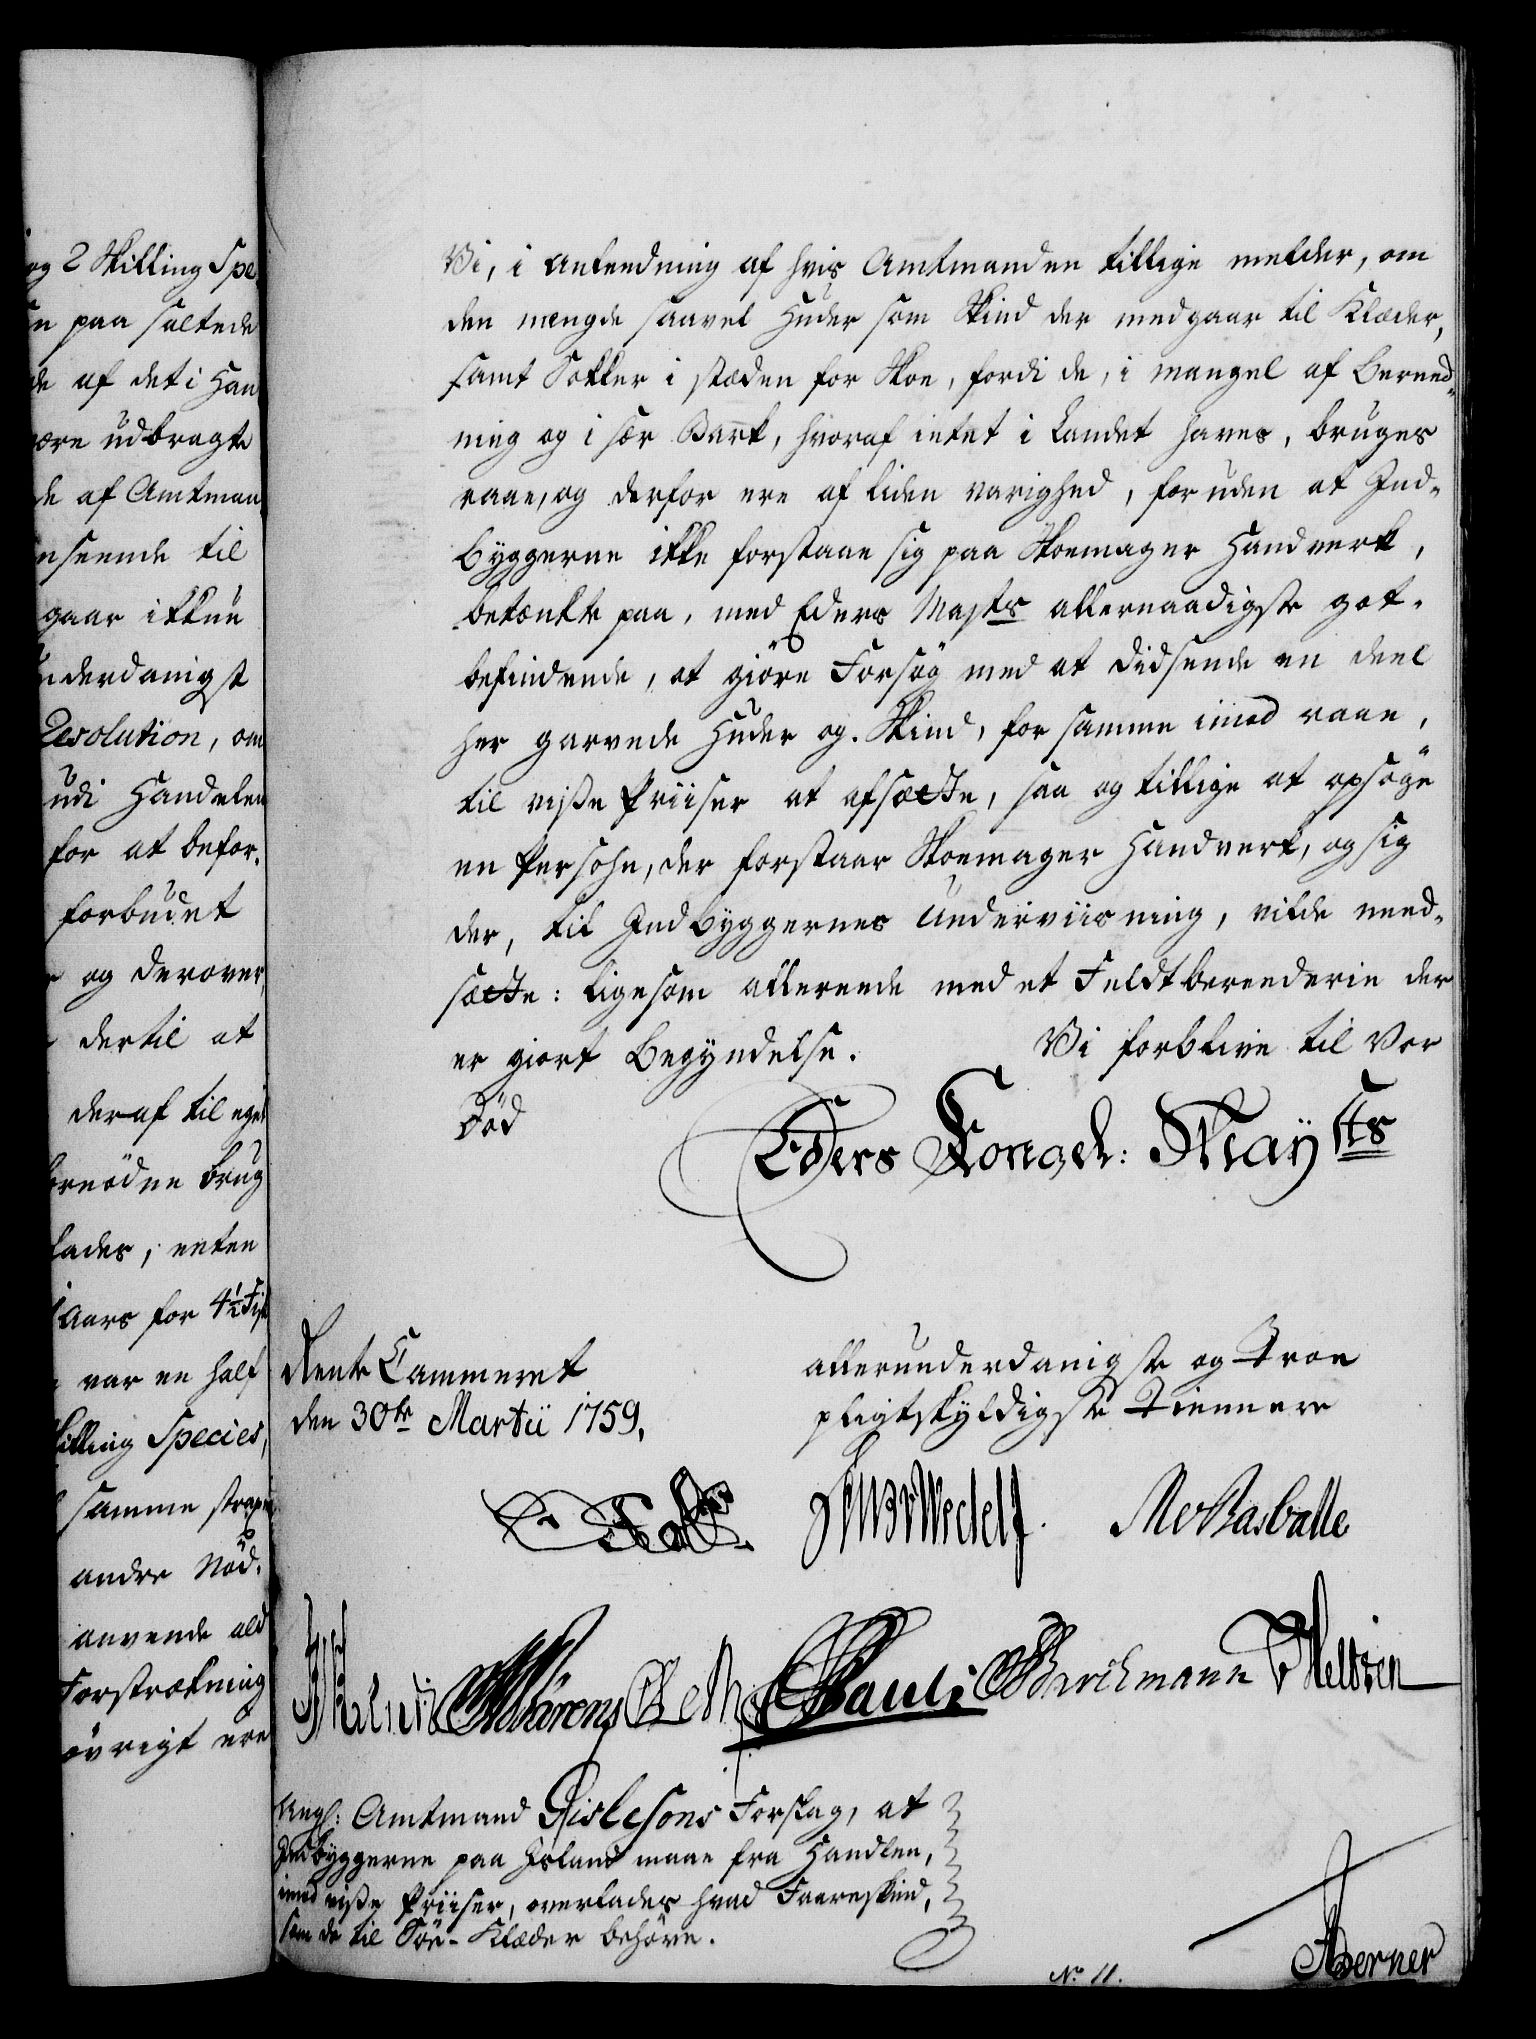 og 2 Skilling Spe
paa saltede
af det i Han
være udbragte
de af Amtman
nseende til
gaar ikkun
nderdanigst
Resolution, om
udi Handelen
for at befor,
forbudet
og derover,
dertil at
deraf til eget
fornödne brug
lades, enten
Aars for 4½ Fisk
var en half
Skilling Species,
samme strax
andre Nöd,
anvende ald
Forstrækning
övrigt ere
Vi, i anleedning af hvis Amtmanden tillige melder, om
den mengde saavel Huder som Skind der medgaar til Klæder,
samt Sokker i stæden for Skoe, fordi de, i mangel af Bereed-
ning og i sær Bark, hvoraf intet i Landet haves, bruges
raae, og derfor ere af liden varighed, foruden at Ind-
byggerne ikke forstaae sig paa Skoemager Handverk,
betænkte paa, med Eders Maysts allernaadigste got-
befindende, at giöre Forsög med at didsende en deel
her garvede Huder og Skind, for samme imod raae,
til visse Priiser at afsætte, saa og tillige at opsöge
en Persohn, der forstaar Skoemager Handverk, og sig
der, til Indbyggernes Underviisning, vilde need-
sætte: ligesom allereede med et Feldtbereederie der
er giort Begyndelse. Vi forblive til Vor
Död
Eders Kongel: Mayts
Rente Cammeret
den 30te Martii 1759.
allerunderdanigste og Troe
pligtskyldigste Tiennere
Wedell
Rasballe
Pauli Barchmann Heltzen
Ang: Amtmand Gislesons Forslag, at
Indbyggerne paa Island maae fra Handlen,
imod visse Priiser, overlades hvad Faareskind,
som de til Söe-Klæder behöve.
No 11.
Berner